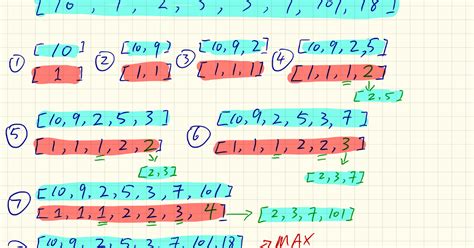 [10, 9, 2, 5, 3, 7, 101, 18]
① [10] ② [10, 9] ③ [10, 9, 2] ④ [10, 9, 2, 5]
[1] [1, 1] [1, 1, 1] [1, 1, 1, 2]
[2, 5]
⑤ [10, 9, 2, 5, 3] ⑥ [10, 9, 2, 5, 3, 7]
[1, 1, 1, 2, 2] [1, 1, 1, 2, 2, 3]
[2, 3] [2, 3, 7]
⑦ [10, 9, 2, 5, 3, 7, 101]
[1, 1, 1, 2, 2, 3, 4] → [2, 3, 7, 101]
[10, 9, 2, 5, 3, 7, 101, 18] MAX